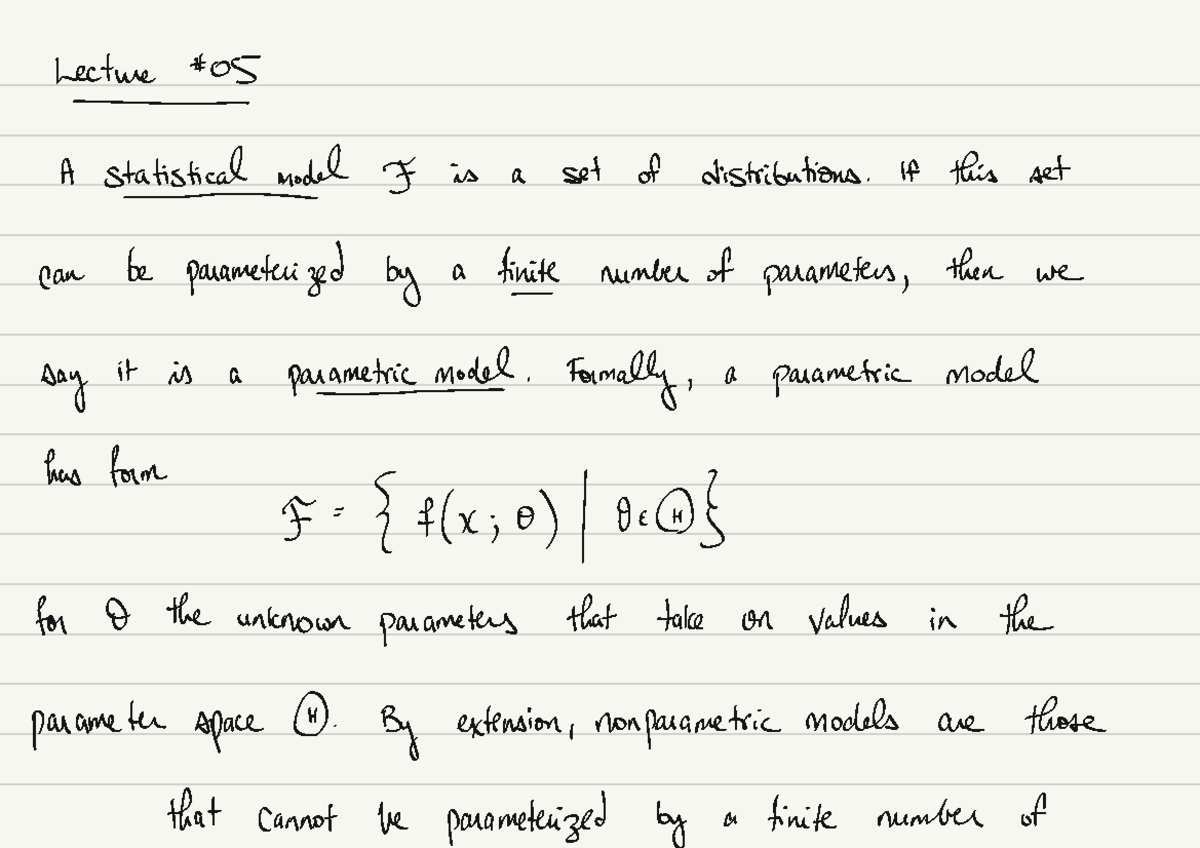 Lecture #05
A statistical model ℱ is a set of distributions. If this set
can be parameterized by a finite number of parameters, then we
say it is a parametric model. Formally, a parametric model
has form
ℱ = { f(x; θ) | θ ∈ Θ }
for θ the unknown parameters that take on values in the
parameter space Θ. By extension, nonparametric models are those
that cannot be parameterized by a finite number of